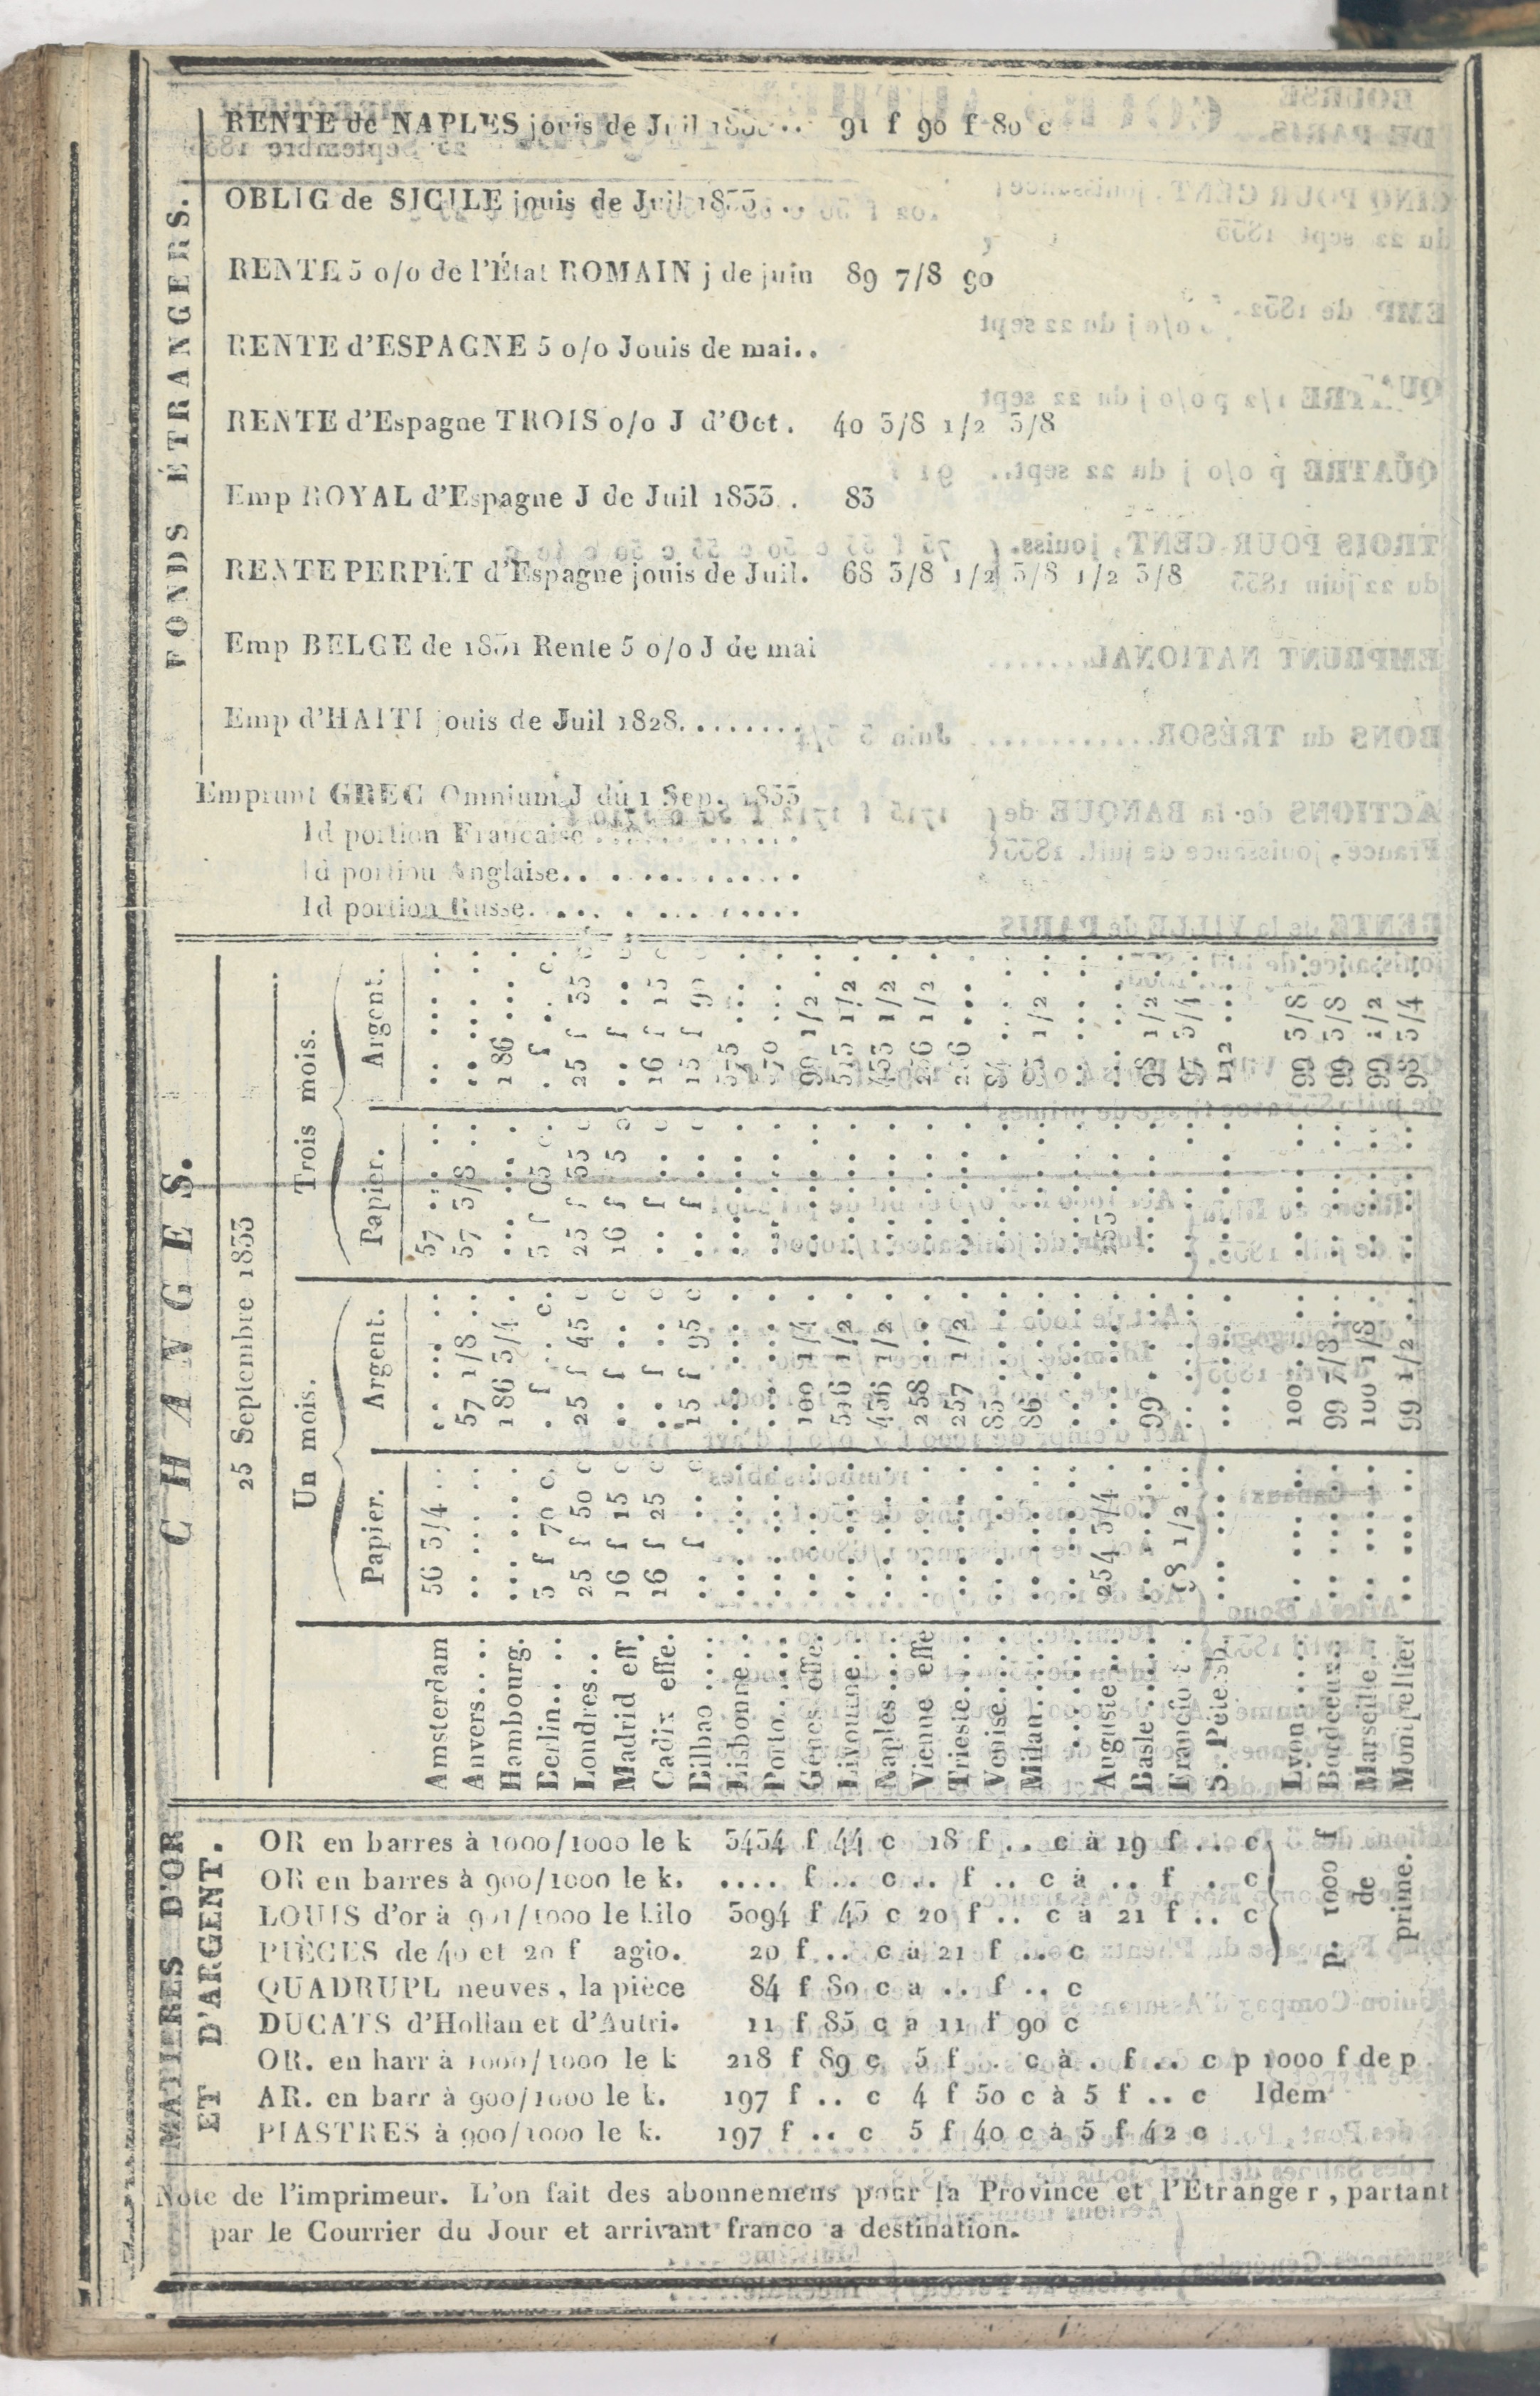 FONDS ÉTRANGERS.
RENTE de NAPLES jouis de Juil 1833... 91 f 90 f 80 c
OBLIG de SICILE jouis de Juil 1833...
RENTE 5 o/o de l'État ROMAIN j de juin 89 7/8 90
RENTE d'ESPAGNE 5 o/o Jouis de mai..
RENTE d'Espagne TROIS o/o J d'Oct. 40 3/8 1/2 3/8
Emp ROYAL d'Espagne J de Juil 1833. . 83
RENTE PERPÉT d'Espagne jouis de Juil. 68 3/8 1/2 3/8 1/2 3/8
Emp BELGE de 1831 Rente 5 o/o J de mai
Emp d'HAITI jouis de Juil 1828........
Emprunt GREC Omnium J du 1 Sep. 1833
Id portion Francaise .............
Id portion Anglaise.. . ............
Id portion Russe. ... . ... ......
CHANGES.
25 Septembre 1833
Un mois. Trois mois.
Papier. Argent. Papier. Argent.
Amsterdam 56 3/4 .. .. ... .. 57 .. .. .. ... ..
Anvers.... .. ... .. 57 1/8 .. 57 3/8 .. .. ... ..
Hambourg. ... ... . 186 3/4 . ... ... . 186 ... .
Berlin.... 3 f 70 c. . f .. c. 3 f 65 c. . f .. c.
Londres... 25 f 50 c 25 f 45 c 25 f 35 c 25 f 35 c
Madrid eff. 16 f 15 c .. f .. c 16 f 5 c .. f .. c
Cadix effe. 16 f 25 c .. f .. c .. f .. c 16 f 15 c
Bilbao .... .. f .. c 15 f 95 c .. f .. c 15 f 90 c
Lisbonne.. ... ... ... 535 ...
Porto..... ... ... ... 570 ...
Gènes effe. ... 100 1/4 ... 99 1/2
Livourne.. ... 516 1/2 ... 513 1/2
Naples.... ... 436 1/2 ... 433 1/2
Vienne effe ... 258 ... ... 256 1/2
Trieste.... ... 257 1/2 ... 256 ...
Venise.... ... 85 ... ...
Milan..... ... 86 ... ... 1/2
Auguste... 254 3/4 ... 253 ...
Basle..... ... 99 ... ... 98 1/2
Francfort . 98 1/2 ... ... 97 3/4
S. Petersb. ... ... ... 112 ...
Lyon..... ... 100 ... ... 99 3/8
Bordeeux.. ... 99 7/8 ... 99 3/8
Marseille.. ... 100 1/8 ... 99 1/2
Montpellier ... 99 1/2 ... 98 3/4
MATIERES D'OR
ET D'ARGENT.
OR en barres à 1000/1000 le k 3434 f 44 c 18 f .. c à 19 f .. c
OR en barres à 900/1000 le k. .... f .. c .. f .. c à .. f . c
LOUIS d'or à 901/1000 le kilo 3094 f 43 c 20 f .. c à 21 f .. c
PIÈCES de 40 et 20 f agio. 20 f .. c à 21 f .. c
p. 1000 f
de
prime.
QUADRUPL neuves, la pièce 84 f 80 c a .. f .. c
DUCATS d'Hollan et d'Autri. 11 f 85 c a 11 f 90 c
OR. en barr à 1000/1000 le k 218 f 89 c 5 f . . c à . f .. c p 1000 f de p
AR. en barr à 900/1000 le k. 197 f .. c 4 f 50 c à 5 f .. c Idem
PIASTRES à 900/1000 le k. 197 f .. c 5 f 40 c à 5 f 42 c
Note de l'imprimeur. L'on fait des abonnemens pour la Province et l'Etranger, partant
par le Courrier du Jour et arrivant franco a destination.